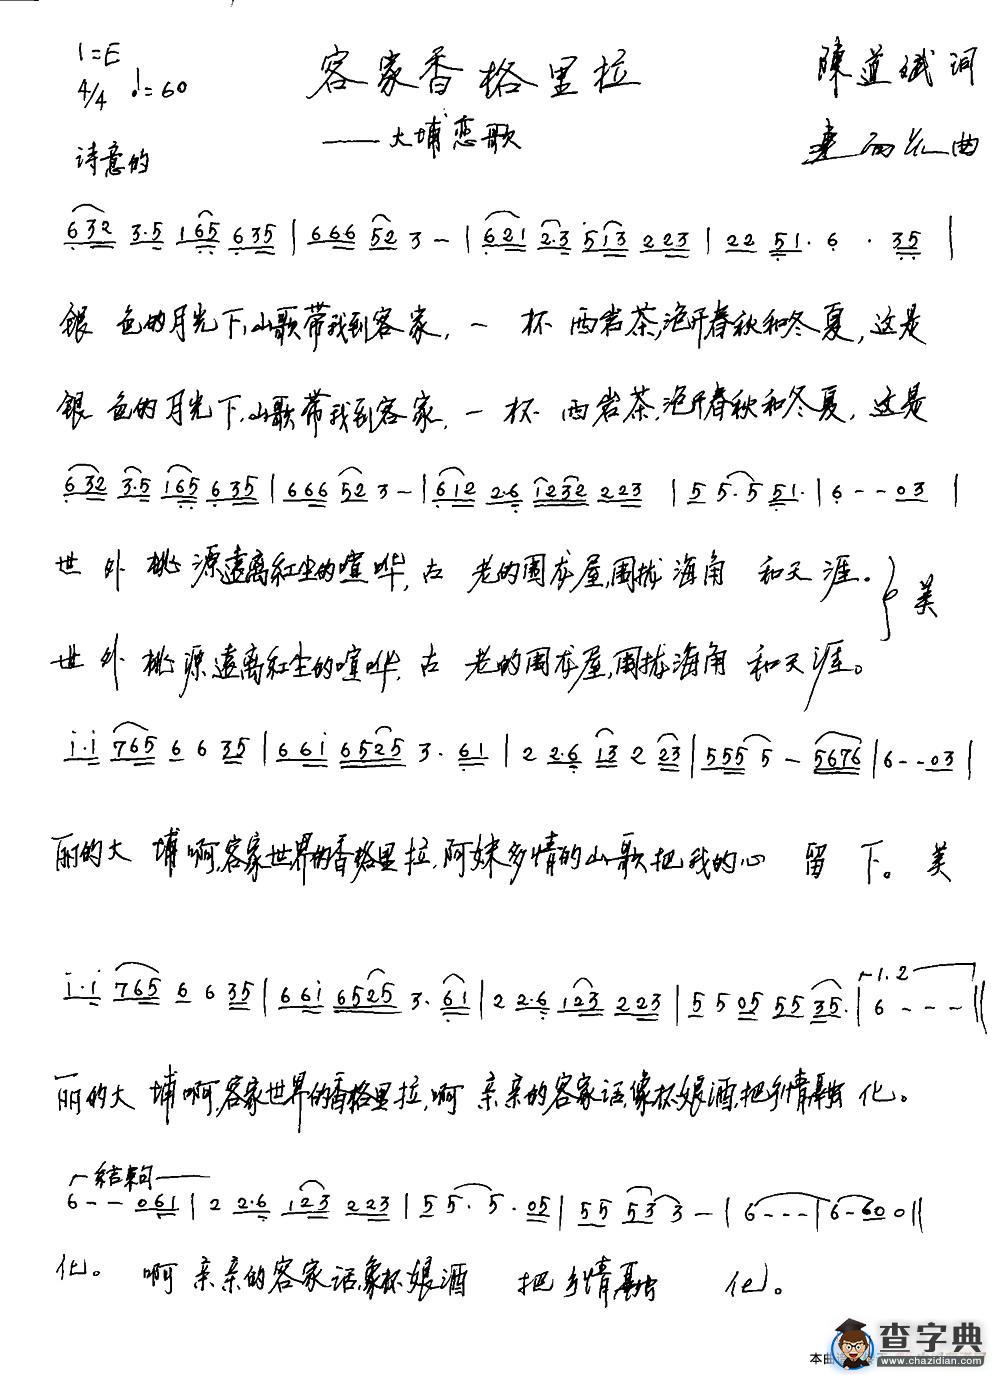 1=E
4/4 ♩=60
客家香格里拉
——大埔恋歌
陳道斌词
曲
诗意的
632 3·5 165 635 | 666 52 3 – | 621 2·3 513 223 | 22 51· 6 · 35 |
銀 色的月光下,山歌带我到客家,一 杯 西岩茶,泡开春秋和冬夏,这是
銀 色的月光下,山歌带我到客家,一 杯 西岩茶,泡开春秋和冬夏,这是
632 3·5 165 635 | 666 52 3 – | 612 2·6 1232 223 | 5 5·5 51· | 6 - - 03 |
世 外 桃 源遠离紅尘的喧哗,古 老的围龙屋,围拢海角 和天涯. } 美
世 外 桃 源遠离紅尘的喧哗,古 老的围龙屋,围拢海角 和天涯。
i·i 765 6 6 35 | 66i 6525 3· 61 | 2 2·6 13 2 23 | 555 5 – 5676 | 6 - - 03 |
丽的大 埔啊,客家世界的香格里拉,阿妹多情的山歌把我的心 留 下。美
i·i 765 6 6 35 | 66i 6525 3· 61 | 2 2·6 123 223 | 5 5 05 55 35· | 6 - - - ‖
1.2
丽的大 埔啊,客家世界的香格里拉,啊 亲亲的客家话,像杯娘酒,把乡情融 化。
结束句
6 - - 061 | 2 2·6 123 223 | 5 5· 5· 05 | 55 53 3 – | 6 - - - | 6 - 60 0 ‖
化。 啊 亲亲的客家话,象杯娘酒 把乡情融 化。
本曲
查字典
www.chazidian.com